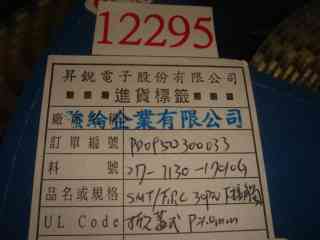 12295
昇銳電子股份有限公司
進貨標籤
廠 綸企業有限公司
訂單編號 PDOP50300033
料號 27-7130-17010G
品名或規格 SMT/F.P.C 30PIN
UL Code 掀蓋式